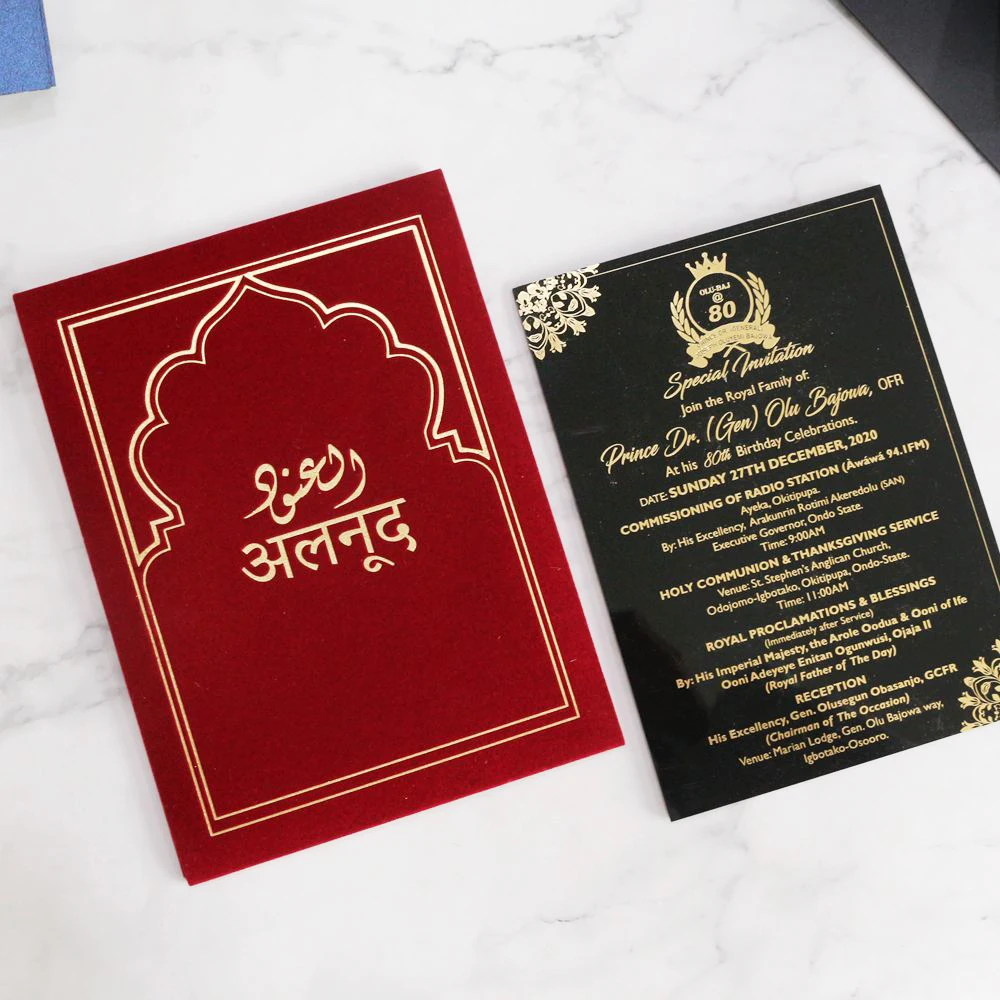 العنود
अलनूद
OLU-BAJ
@
80
Special Invitation
Join the Royal Family of:
Prince Dr. (Gen) Olu Bajowa, OFR
At his 80th Birthday Celebrations.
DATE: SUNDAY 27TH DECEMBER, 2020
COMMISSIONING OF RADIO STATION (Àwáwá 94.1FM)
Ayeka, Okitipupa.
By: His Excellency, Arakunrin Rotimi Akeredolu (SAN)
Executive Governor, Ondo State.
Time: 9:00AM
HOLY COMMUNION & THANKSGIVING SERVICE
Venue: St. Stephen's Anglican Church,
Odojomo-Igbotako, Okitipupa, Ondo-State.
Time: 11:00AM
ROYAL PROCLAMATIONS & BLESSINGS
(Immediately after Service)
By: His Imperial Majesty, the Arole Oodua & Ooni of Ife
Ooni Adeyeye Enitan Ogunwusi, Ojaja II
(Royal Father of The Day)
RECEPTION
His Excellency, Gen. Olusegun Obasanjo, GCFR
(Chairman of The Occasion)
Venue: Marian Lodge, Gen. Olu Bajowa way,
Igbotako-Osooro.